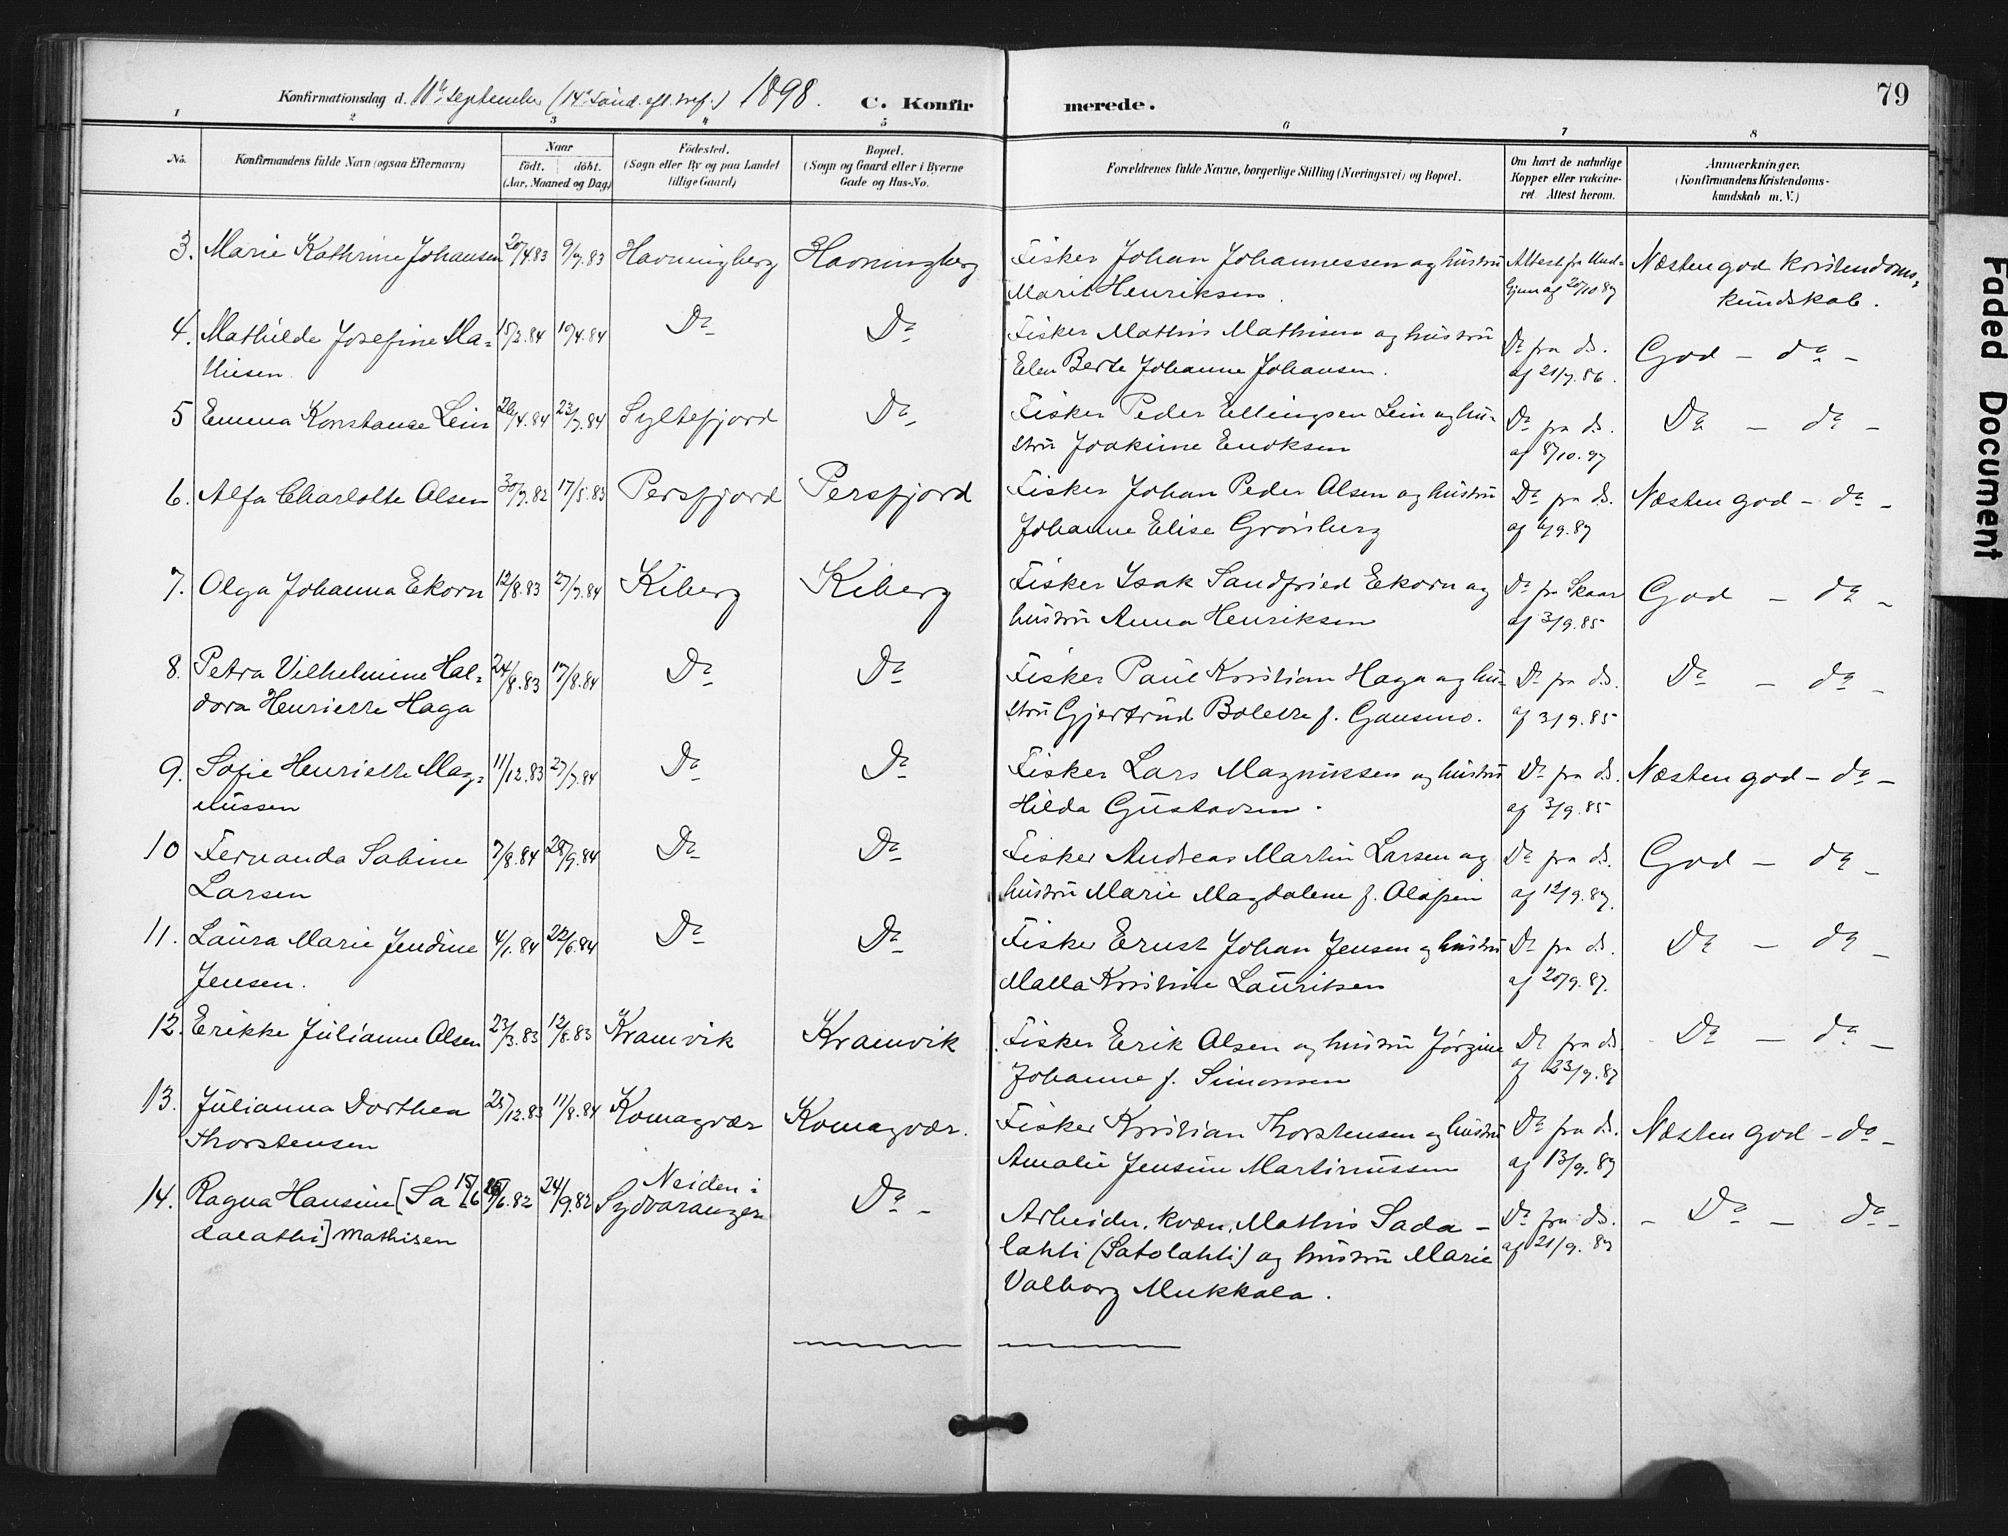 Konfirmationsdag d. 11te September (14de Sönd. eft. tref.) 1898. C. Konfirmerede. 79
1 2 3 4 5 6 7 8
No. Konfirmandens fulde Navn (ogsaa Efternavn) Naar födt. döbt. (Aar, Maaned og Dag) Födested. (Sogn eller By og paa Landet tillige Gaard) Bopæl. (Sogn og Gaard eller i Byerne Gade og Hus-No. Forældrenes fulde Navne, borgerlige Stilling (Næringsvei) og Bopæl. Om havt de naturlige Kopper eller vakcineret Attest herom. Anmærkninger. (Konfirmandens Kristendomskundskab m. V.)
3. Marie Kathrine Johansen 20/4.83 9/7.83 Havningberg Havningberg Fisker Johan Johannessen og hustru Attest fra Und= Næsten god kristendoms=
Marit Henriksen. af 20/10 87 kundskab.
4. Mathilde Josefine Ma= 15/2.84 10/4.84 Do Do Fisker Mathis Mathisen og hustru Do fra ds. God – do –
thisen. Elen Berte Johanne Johansen. af 21/7.86.
5 Emma Konstanse Lein 26/4.84 23/7.84 Syltefjord Do Fisker Peder Ellingsen Lein og hu= Do fra ds. Do – do –
stru Joakime Enoksen af 8/10.97
6. Alfa Charlotte Olsen 30/7.82 17/5.83 Persfjord Persfjord Fisker Johan Peder Olsen og hustru Do fra ds. Næsten god – do –
Johanne Elise Grönberg af 9.87
7. Olga Johanna Ekorn 12/8.83 27/7.84 Kiberg Kiberg Fisker Isak Sandfried Ekorn og Do fra Skaar God – do –
hustru Anna Henriksen af 3/9.85
8. Petra Vilhelmine Hal= 24/8.83 17/8.84 Do Do Fisker Paul Kristian Haga og hu= Do fra ds. Do – do –
dora Henriette Haga stru Gjertrud Bolette f. Gausmo. af 3/9.85
9. Sofie Henriette Mag= 11/12.83 27/7.84 Do Do Fisker Lars Magnussen og hustru Do fra ds. Næsten god – do –
nussen Hilda Gustavsen. af 3/9.85
10 Fernanda Sabine 7/8.84 28/9.84 Do Do Fisker Andreas Martin Larsen og Do fra ds. God – do –
Larsen hustru Marie Magdalene f. af 12/9.87.
11. Laura Marie Jendine 4/1.84 22/6.84 Do Do Fisker Ernst Johan Jensen og hustru Do fra ds. Do – do –
Jensen. Malla Kristine Lauritsen af 20/9.87.
12. Erikke Julianne Olsen 23/3.83 12/8.83 Kramvik Kramvik Fisker Erik Olsen og hustru Jørgine Do fra ds. Do – do –
Johanne f. Simonsen af 23/9.87
13. Julianna Dorthea 25/12.83 11/8.84 Komagvær Komagvær. Fisker Kristian Thorstensen og hustru Do fra ds. Næsten god – do –
Thorstensen Amalie Jensine Martinussen af 13/9.87
14. Ragna Hansine [Sa 15/6 /6.82 24/9.82 Neiden i Sydvaranger Do – Arbeider, kvæn, Mathis Sada– Do fra ds. – Do – do –
dalathi] Mathisen lahti (Satolahti) og hustru Marie af 21/9.87
Valborg Mukkala.
Faded Document